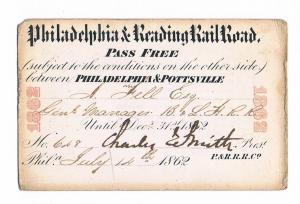 Philadelphia & Reading Rail Road.
PASS FREE
(subject to the conditions on the other side)
between PHILADELPHIA & POTTSVILLE
A. Hell Esq.
Genl Manager B & L. H. R. R.
Until Decr. 31st 1862
No. 648 Charles E Smith Prest.
Phila July 14th 1862 P. & R. R. R. Co.
1862
1862